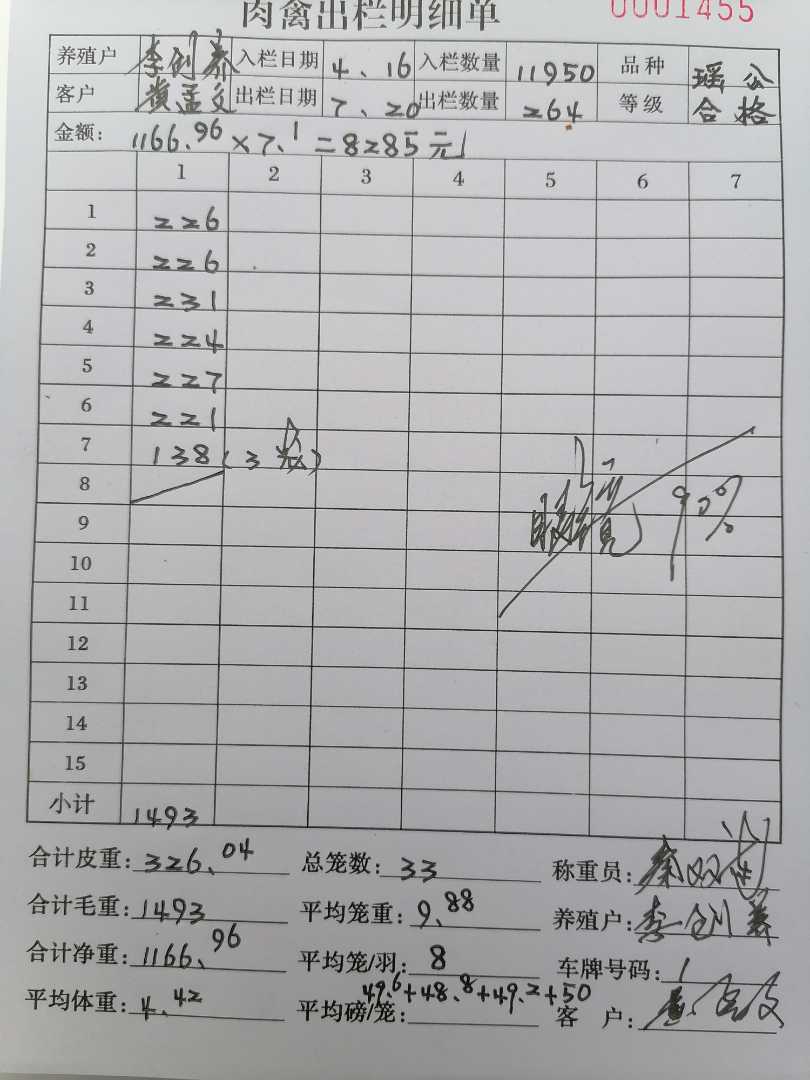 肉禽出栏明细单 0001455
养殖户 李创养 入栏日期 4、16 入栏数量 11950 品种 瑶公
客户 黄孟文 出栏日期 7、20 出栏数量 264 等级 合格
金额: 1166.96 × 7.1 = 8285元
1 2 3 4 5 6 7
1 226
2 226
3 231
4 224
5 227
6 221
7 138 (3笼)
8
9 90%
10
11
12
13
14
15
小计 1493
合计皮重: 326.04 总笼数: 33 称重员:
合计毛重: 1493 平均笼重: 9.88 养殖户:
合计净重: 1166.96 平均笼/羽: 8 车牌号码: 1
平均体重: 4.42 平均磅/笼: 49.6+48.8+49.2+50 客 户: